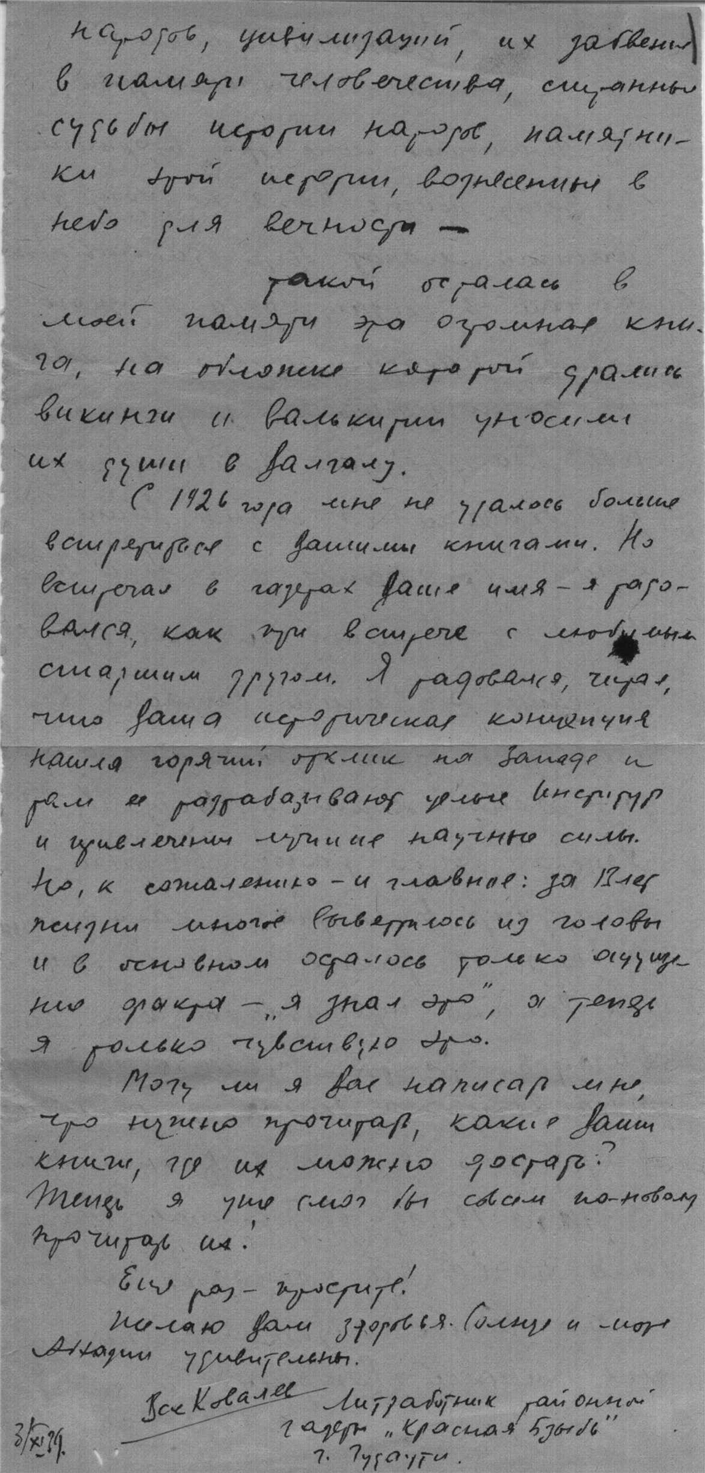 народов, цивилизаций, их забвение
в памяти человечества, странные
судьбы истории народов, памятни-
ки этой истории, вознесенные в
небо для вечности —
такой осталась в
моей памяти эта огромная кни-
га, на обложке которой дрались
викинги и валькирии уносили
их души в Валгалу.
С 1926 года мне не удалось больше
встретиться с Вашими книгами. Но
встречая в газетах Ваше имя – я радо-
вался, как при встрече с любимым
старшим другом. Я радовался, читая,
что Ваша историческая концепция
нашла горячий отклик на Западе и
там ее разрабатывают целые Институты
и привлечены лучшие научные силы.
Но, к сожалению – и главное: за 13 лет
жизни многое выветрилось из головы
и в основном осталось только ощуще-
ние факта – „я знал это", а теперь
я только чувствую это.
Могу ли я Вас написать мне,
что нужно прочитать, какие Ваши
книги, где их можно достать?
Теперь я уже смог бы совсем по-новому
прочитать их!
Еще раз – простите!
Желаю Вам здоровья. Солнце и море
Абхазии удивительны.
Вс Ковалев
Литработник районной
газеты „Красная Бзыбь"
г. Гудауты.
3/XI 39.